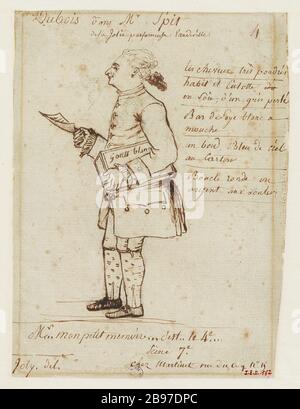 Dubois dans Mr Spit
de la Jolie parfumeuse Vaudeville
4
les cheveux très poudrés
habit et Culotte
en soie d'un gris perle
Bas de soye blanc a
mouche
un bord Bleu de ciel
au Carton
Boucle ronde en
argent aux souliers
gants blancs
Mr. mon petit memoire ... C'est .. le 4e ...
Scène 7e
Joly. del.
chez Martinet rue du Coq No 15
alamy
Image ID: 2B97DPC
www.alamy.com